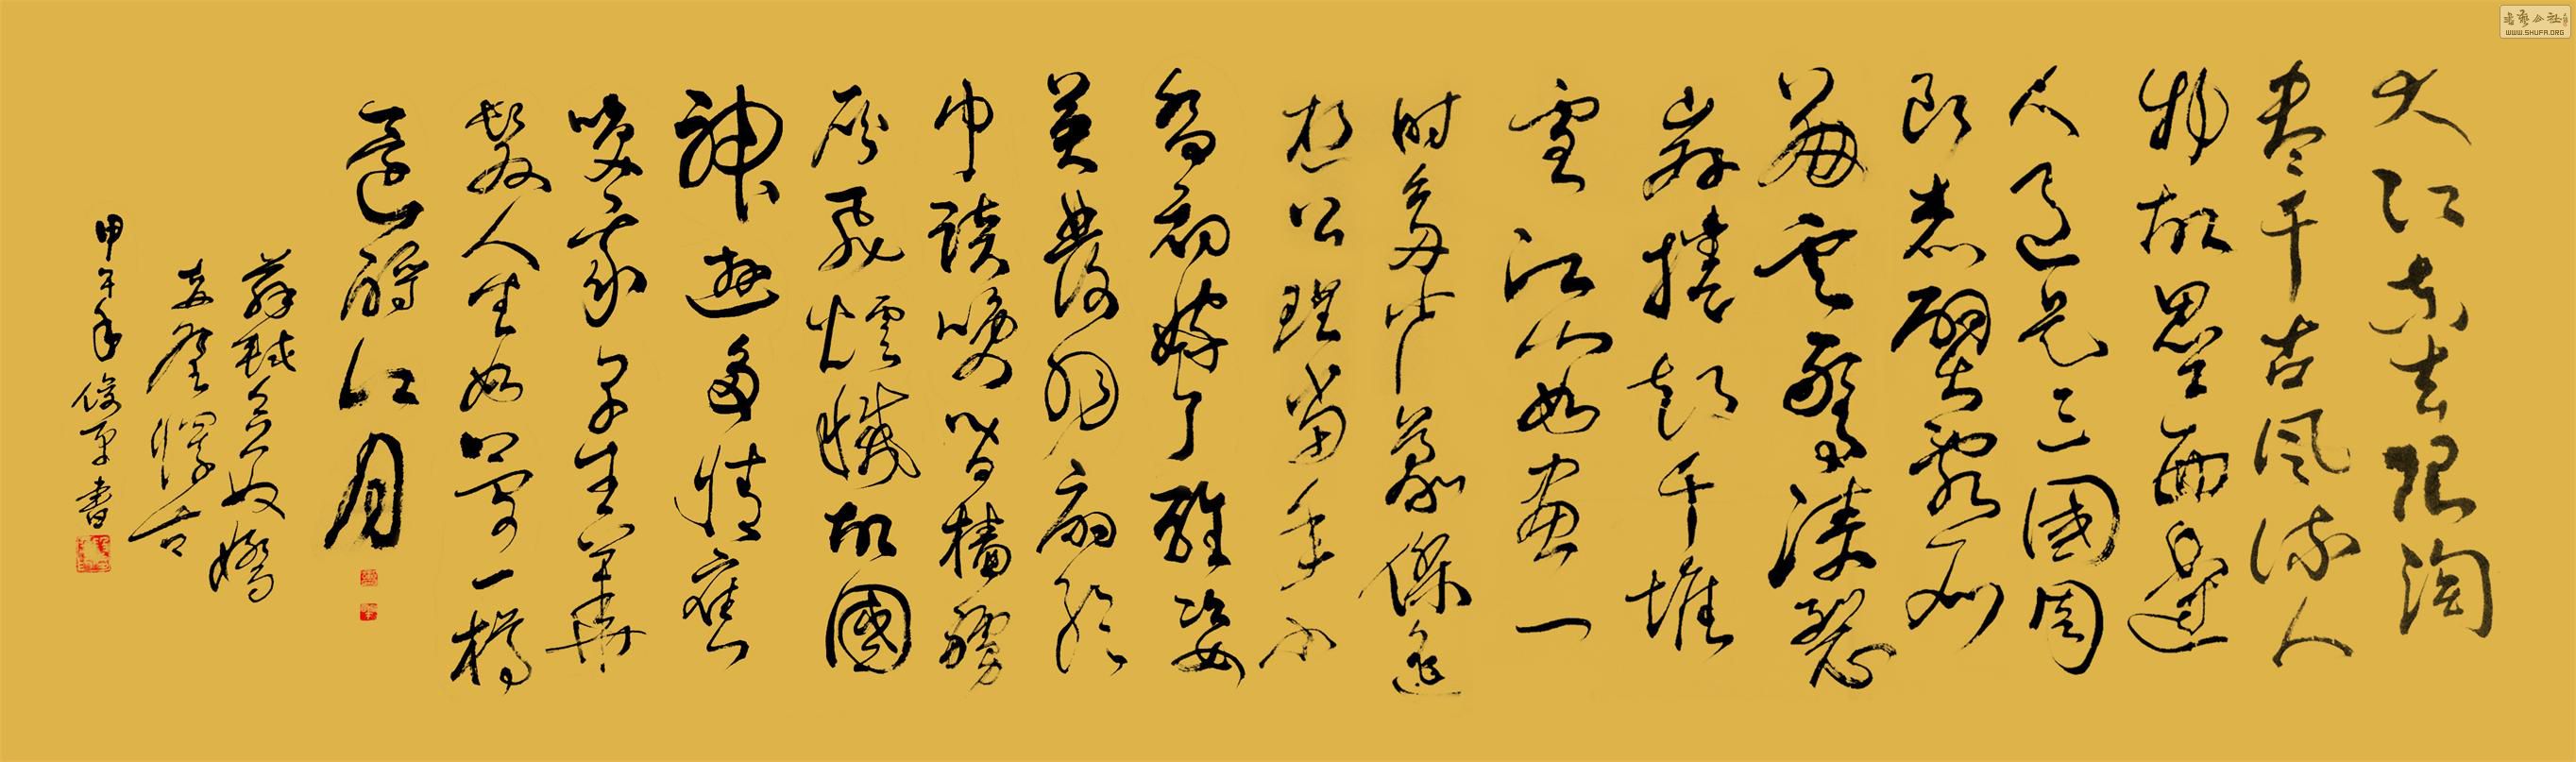 大江东去浪淘
尽千古风流人
物故垒西边
人道是三國周
郎赤壁乱石
崩云惊涛裂
岸捲起千堆
雪江山如画一
时多少豪傑遥
想公瑾当年小
乔初嫁了雄姿
英發羽扇纶
巾谈笑间樯橹
灰飛煙滅故國
神遊多情應
笑我早生華
髮人生如梦一樽
還酹江月
蘇軾念奴嬌
赤壁懷古
甲午年 俊军書
WWW.SHUFA.ORG